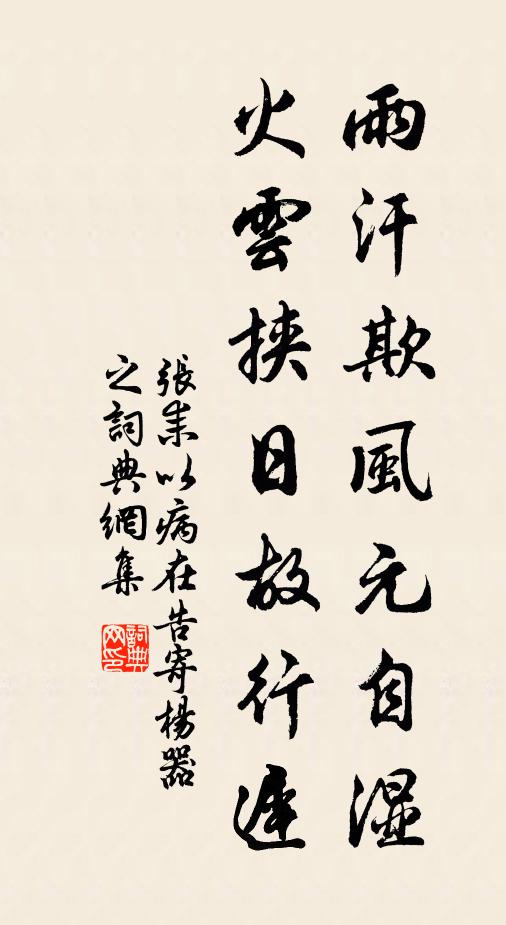 雨汗欺風元自濕
火雲挾日故行遲
張耒以病在告寄楊器
之詞典網集
詞典网印